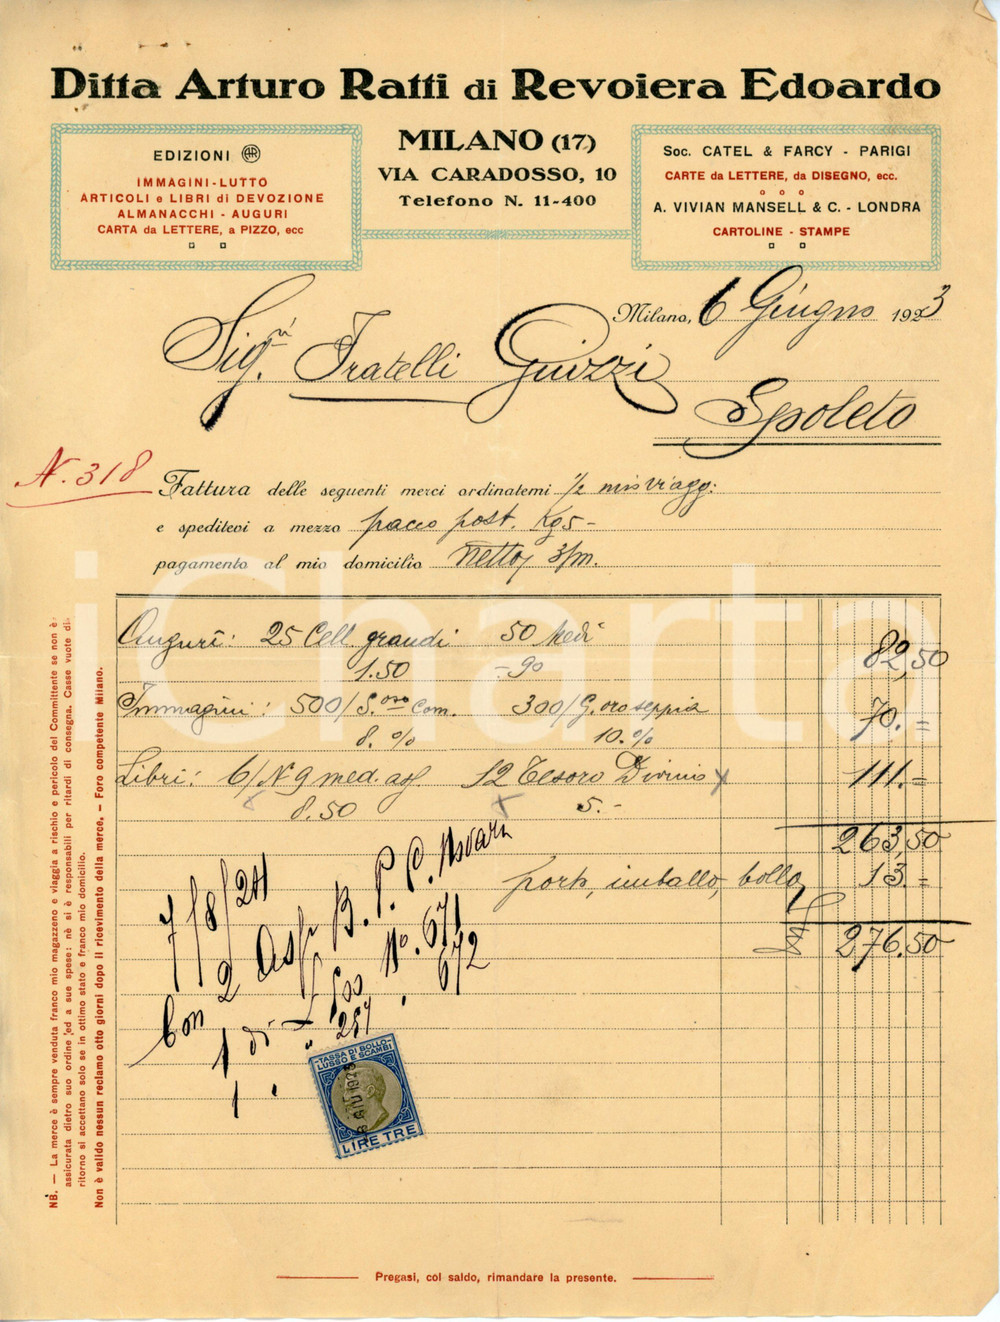 Ditta Arturo Ratti di Revoiera Edoardo
EDIZIONI AR
IMMAGINI-LUTTO
ARTICOLI e LIBRI di DEVOZIONE
ALMANACCHI - AUGURI
CARTA da LETTERE, a PIZZO, ecc
MILANO (17)
VIA CARADOSSO, 10
Telefono N. 11-400
Soc. CATEL & FARCY - PARIGI
CARTE da LETTERE, da DISEGNO, ecc.
A. VIVIAN MANSELL & C. - LONDRA
CARTOLINE - STAMPE
Milano, 6 Giugno 1923
Sigri Fratelli Guizzi
Spoleto
N. 318
Fattura delle seguenti merci ordinatemi 1/2 mio viagg:
e speditevi a mezzo pacco post. Kg 5-
pagamento al mio domicilio netto 3/m.
Auguri: 25 Cell. grandi 50 Medi 82,50
1.50 -.90
Immagini: 500/S. oro com. 300/G. oro seppia 70.=
8.% 10.%
Libri: 6/N 9 med. asf. 12 Tesoro Divino 111.=
8.50 5.-
263,50
porto, imballo, bollo 13.=
276.50
7/8/24
Con 2 Ass B. P. C.
1 di £ 500 No. 671
1 " " 257 " 672
TASSA DI BOLLO
LUSSO E SCAMBI
LIRE TRE
NB. — La merce è sempre venduta franco mio magazzeno e viaggia a rischio e pericolo del Committente se non è
assicurata dietro suo ordine ed a sue spese: nè si è responsabili per ritardi di consegna. Casse vuote di
ritorno si accettano solo se in ottimo stato e franco mio domicilio.
Non è valido nessun reclamo otto giorni dopo il ricevimento della merce. – Foro competente Milano.
Pregasi, col saldo, rimandare la presente.
iCharta
iCharta